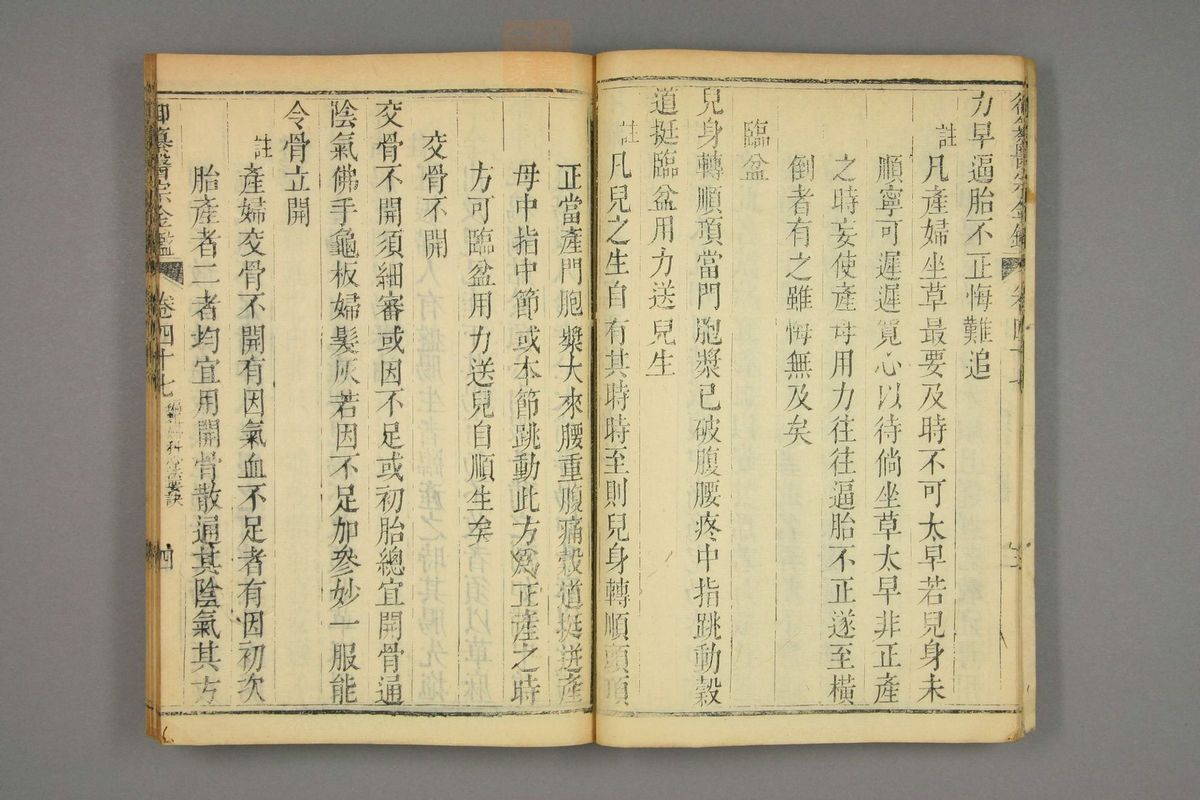 力早逼胎不正悔難追
註凡產婦坐草最要及時不可太早若兒身未
順寧可遲遲寬心以待倘坐草太早非正產
之時妄使產母用力往往逼胎不正遂至橫
倒者有之雖悔無及矣
臨盆
兒身轉順頂當門胞漿已破腹腰疼中指跳動穀
道挺臨盆用力送兒生
註凡兒之生自有其時時至則兒身轉順頭頂
正當產門胞漿大來腰重腹痛穀道挺迸產
母中指中節或本節跳動此方爲正產之時
方可臨盆用力送兒自順生矣
交骨不開
交骨不開須細審或因不足或初胎總宜開骨通
陰氣佛手龜板婦髮灰若因不足加參妙一服能
令骨立開
註產婦交骨不開有因氣血不足者有因初次
胎產者二者均宜用開骨散通其陰氣其方
御纂醫宗金鑑 卷四十七 編輯婦科心法要訣 四